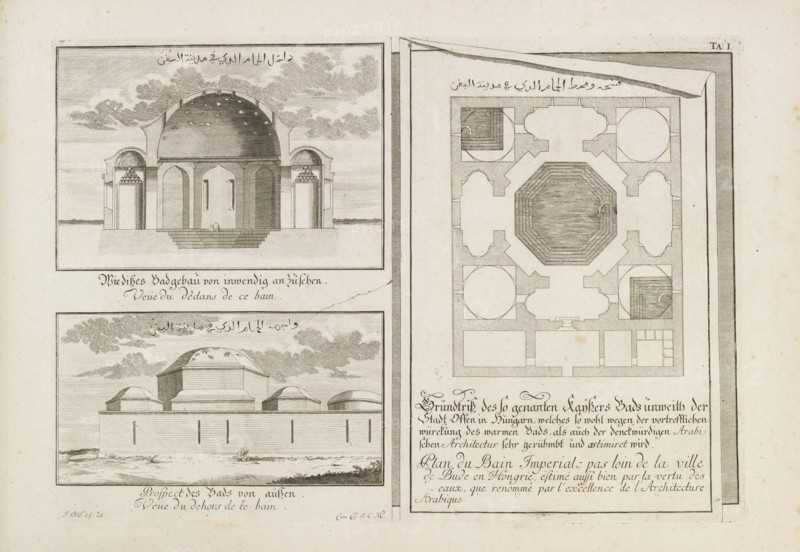 داخل الحمام الذي في مدينة البدن
Wie dises Badgebäu von inwendig an zusehen.
Veüe du dedans de ce bain.
واجهة الحمام الذي في مدينة
Prospect des Bads von außen.
Veüe du dehors de ce bain.
TA: I.
الحمام الذي في مدينة
Grundriß des so genanten Kaÿsers Bads unweith der
Stadt Offen in Hungarn, welches so wohl wegen der vortrefflichen
würckung des warmen Bads, als auch der denckwürdigen Arabi-
schen Architectur sehr gerühmbt und æstimiret wird.
Plan du Bain Imperiale pas loin de la ville
de Bude en Hongrie, estimé aussi bien par la vertu des
eaux, que renommé par l'excellence de l'Architecture
Arabique